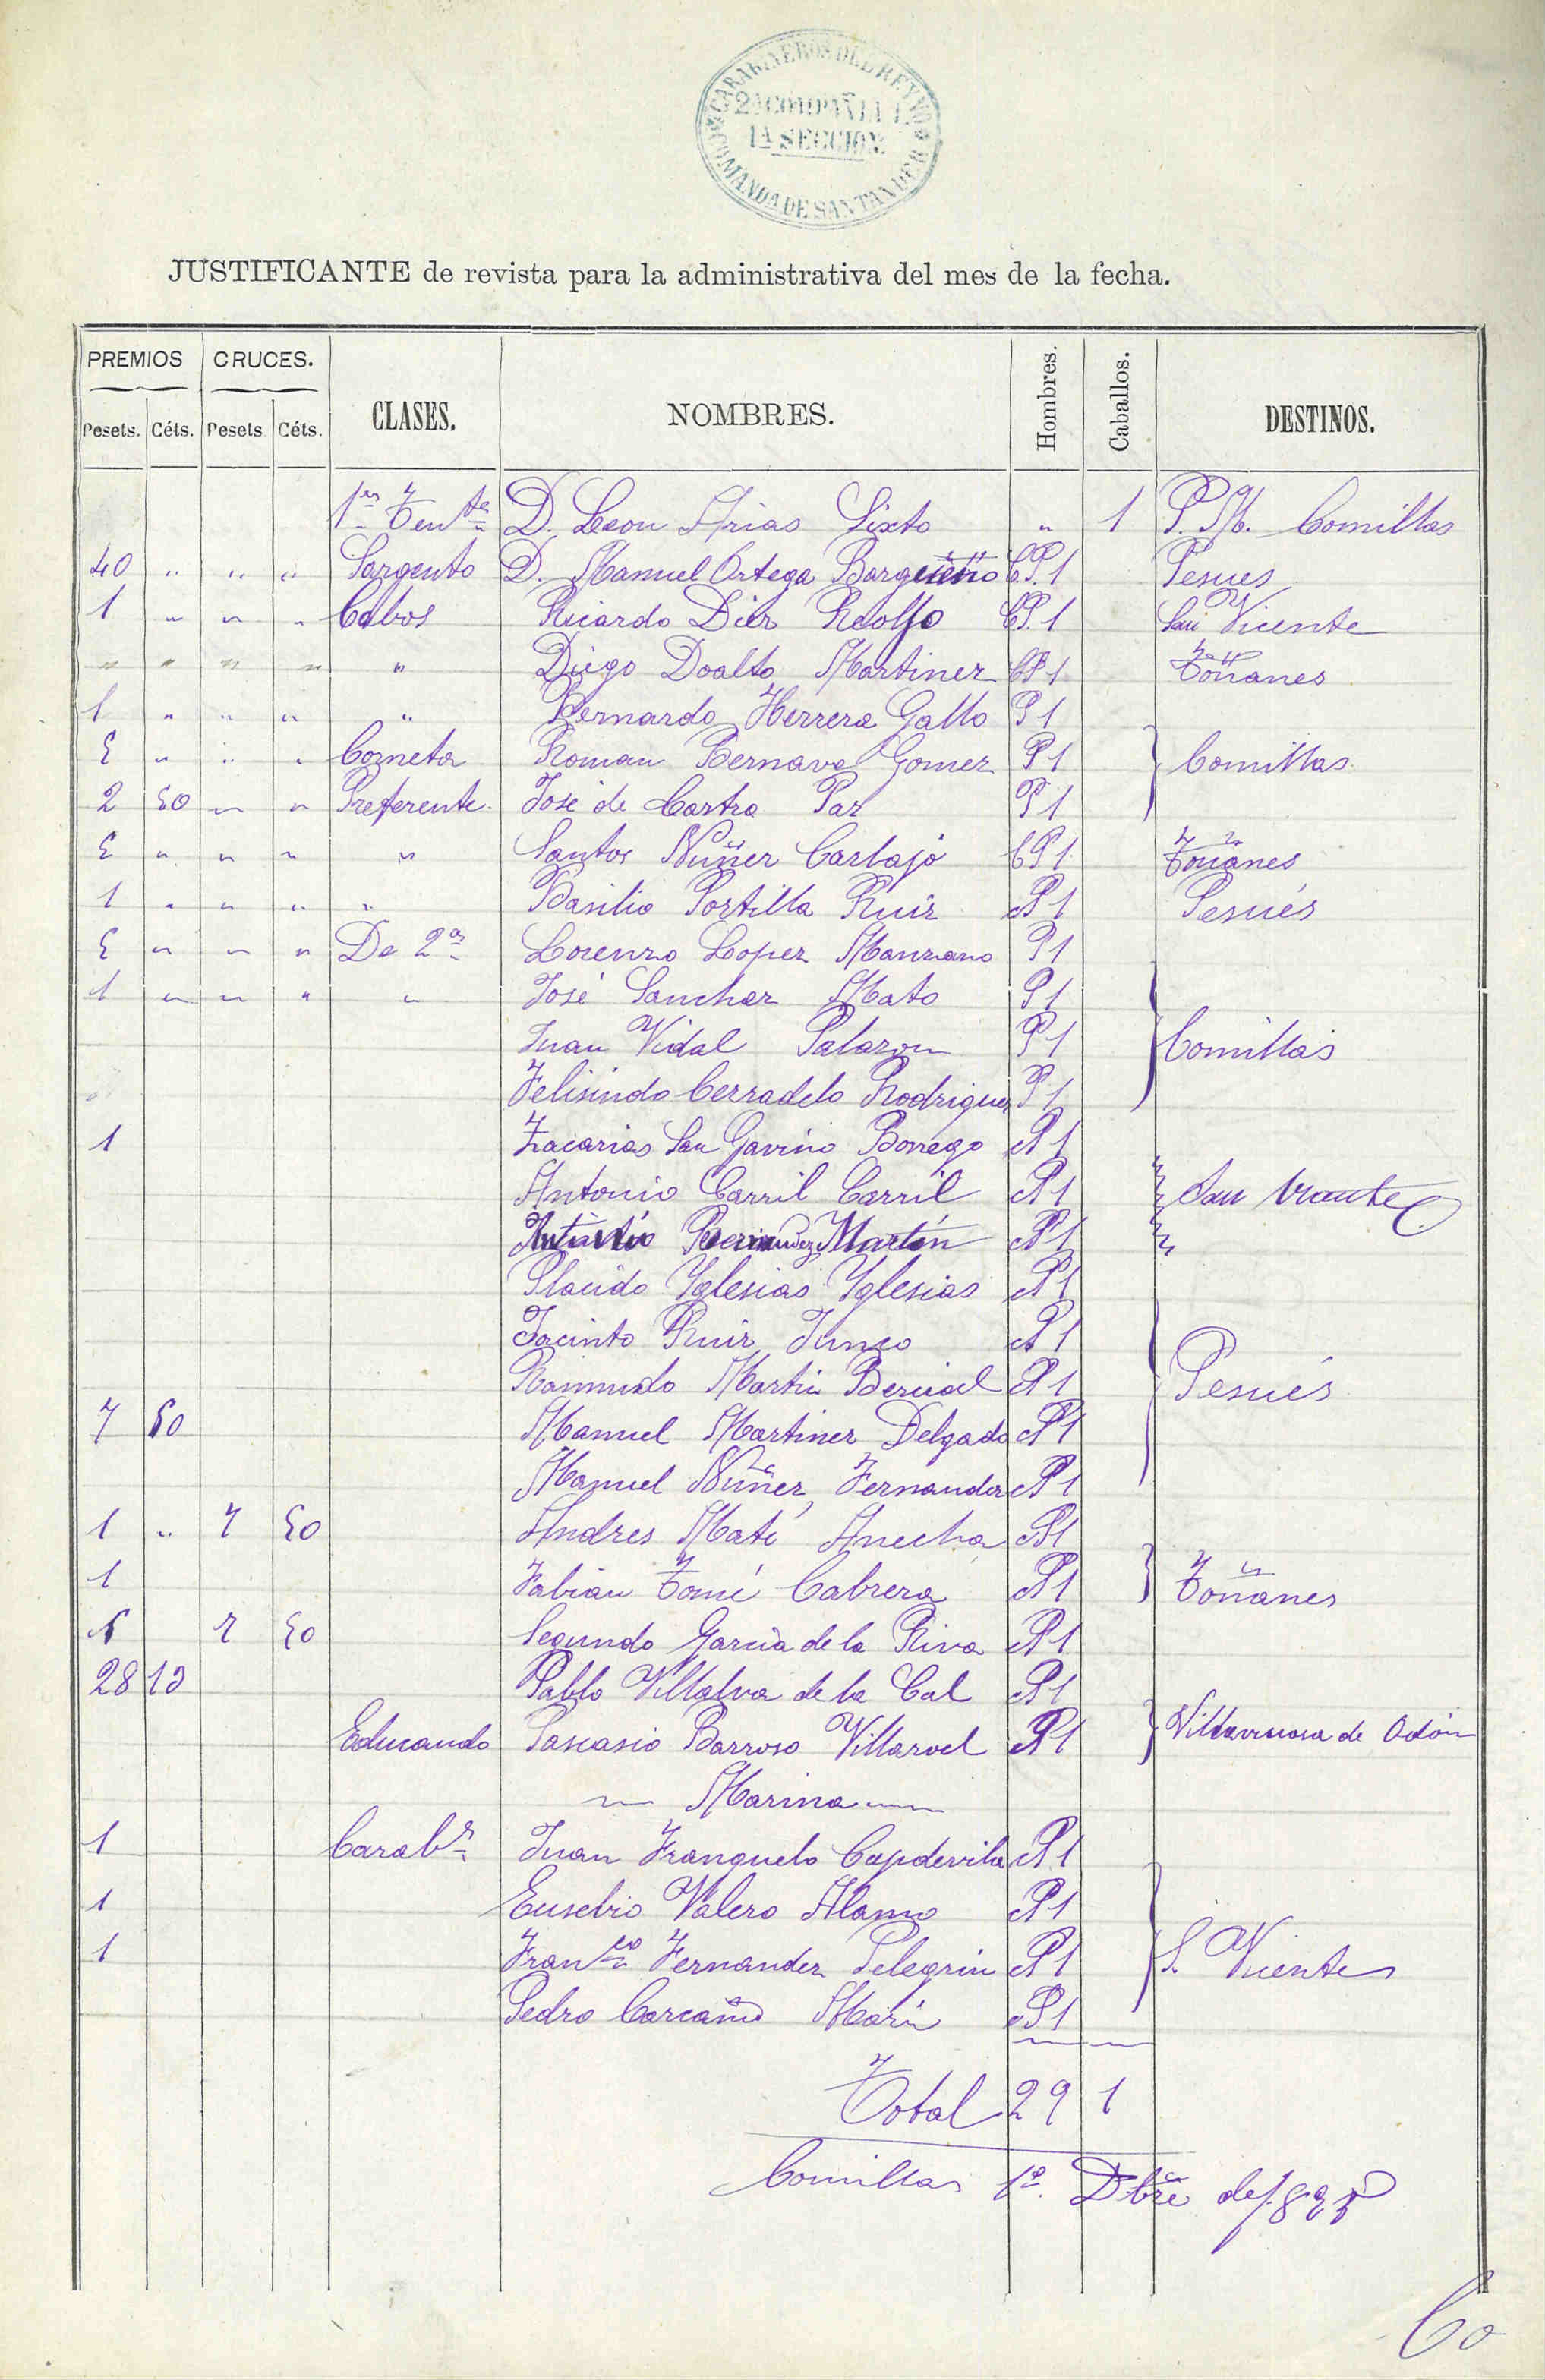 CARABINEROS DEL REYNO
2ª COMPAÑIA
1ª SECCION
COMANDA DE SANTANDER
JUSTIFICANTE de revista para la administrativa del mes de la fecha.
PREMIOS CRUCES. CLASES. NOMBRES. Hombres. Caballos. DESTINOS.
Pesets. Céts. Pesets. Céts.
1er Tente D. Leon Arias Sixto " 1 P. M. Comillas
40 " " " Sargento D. Manuel Ortega C.P. 1 Pesues
1 " " " Cabos Ricardo Diez Rdolfo C.P. 1 San Vicente
" " " " " Diego Doalto Martinez C.P. 1 Toñanes
1 " " " " Bernardo Herrera Gallo P 1
5 " " " Corneta Roman Bernave Gomez P 1 Comillas
2 50 " " Preferente José de Castro Paz P 1
5 " " " " Santos Nuñez Carbajo C P 1 Toñanes
1 " " " " Basilio Portilla Ruiz P 1 Pesués
5 " " " De 2ª Lorenzo Lopez Manzano P 1
1 " " " " José Sanchez Mato P 1
Juan Vidal Palazon P 1 Comillas
Felisindo Cerradelo Rodriguez P 1
1 Zacarias San Gavino Borrego P 1
Antonio Carril Carril P 1 San Vicente
Antonio Bermudez Martín P 1
Placido Yglesias Yglesias P 1
Jacinto Ruiz Junco P 1
Raimundo Martin Bernal P 1 Pesués
7 50 Manuel Martinez Delgado P 1
Manuel Nuñez Fernandez P 1
1 " 7 50 Andres Maté Anecha P 1
1 Fabian Tomé Cabrera P 1 Toñanes
1 7 50 Segundo Garcia de la Riva P 1
28 13 Pablo Villalva de la Cal P 1
Educando Pascasio Barroso Villaroel P 1 Villaviciosa de Odón
Marina
1 Carabº Juan Franquelo Capdevila P 1
1 Eusebio Valero Alamo P 1
1 Franco Fernandez Pelegrin P 1 S. Vicente
Pedro Carcaño Marin P 1
Total 29 1
Comillas 1º Dbre de 1.895